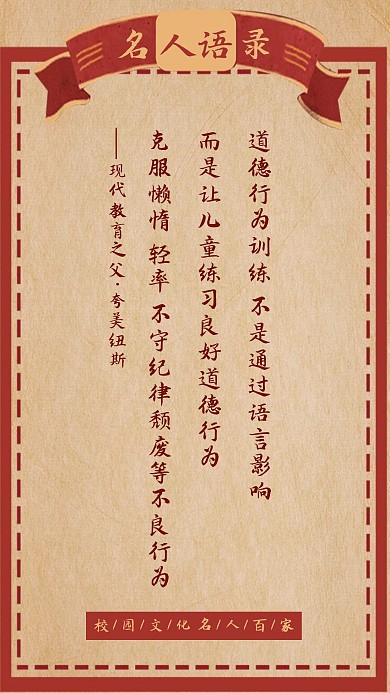 名人语录
道德行为训练 不是通过语言影响
而是让儿童练习良好道德行为
克服懒惰 轻率 不守纪律颓废等不良行为
——现代教育之父·夸美纽斯
校/园/文/化/名/人/百/家